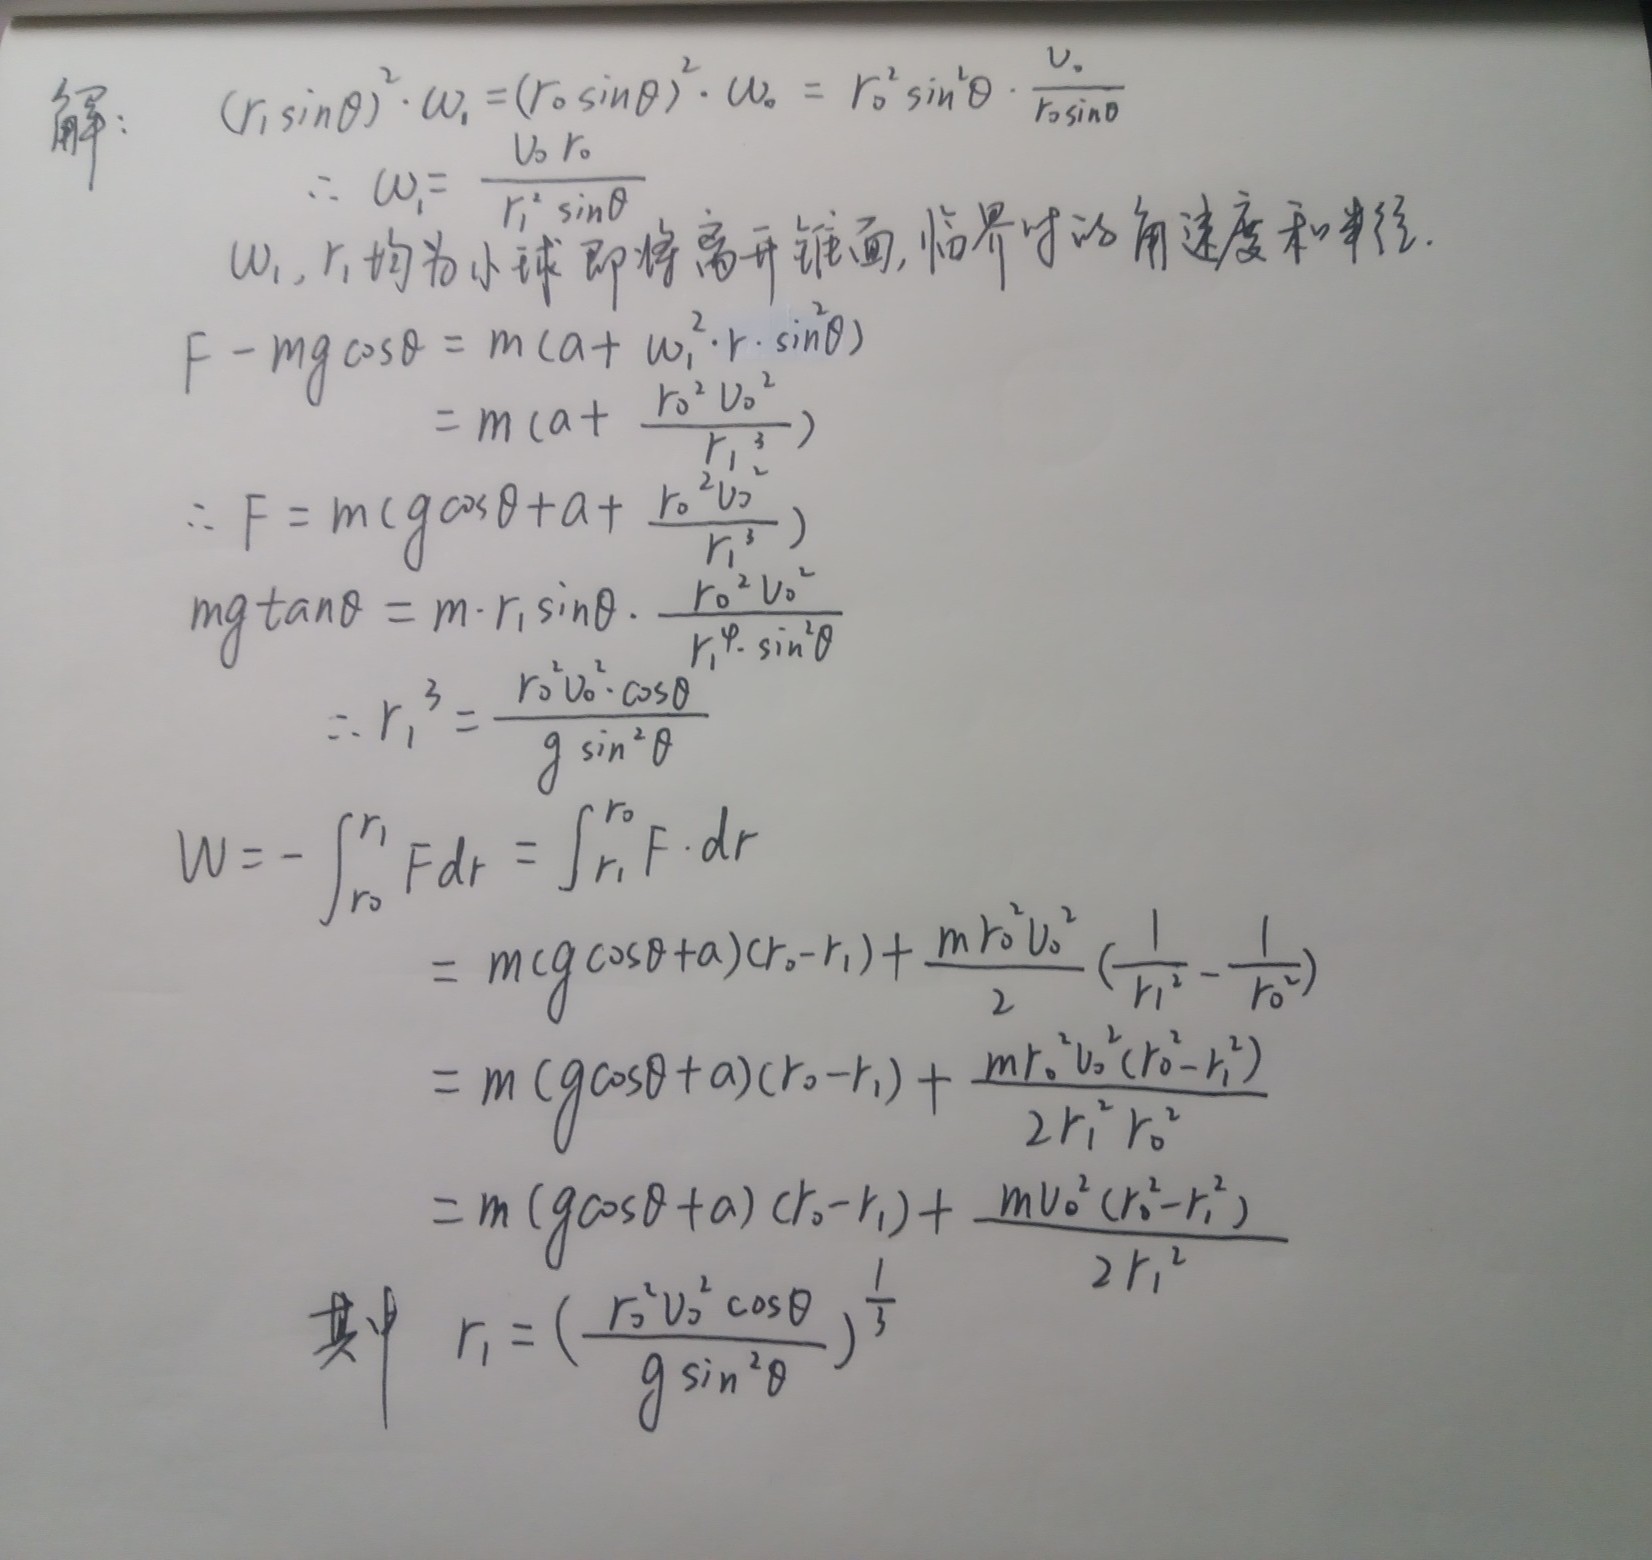 解: (r₁sinθ)²·ω₁=(r₀sinθ)²·ω₀ = r₀²sin²θ · v₀/(r₀sinθ)
∴ ω₁= v₀r₀/(r₁² sinθ)
ω₁, r₁均为小球即将离开锥面,临界时的角速度和半径.
F - mg cosθ = m(a+ ω₁²·r·sin²θ)
= m(a+ r₀²v₀²/r₁³)
∴ F = m(gcosθ+a+ r₀²v₀²/r₁³)
mg tanθ = m·r₁sinθ· r₀²v₀²/(r₁⁴·sin²θ)
∴ r₁³ = r₀²v₀²·cosθ/(g sin²θ)
W = -∫_{r₀}^{r₁} Fdr = ∫_{r₁}^{r₀} F·dr
= m(gcosθ+a)(r₀-r₁)+ mr₀²v₀²/2 (1/r₁² - 1/r₀²)
= m(gcosθ+a)(r₀-r₁)+ mr₀²v₀²(r₀²-r₁²)/(2r₁²r₀²)
= m(gcosθ+a)(r₀-r₁)+ mv₀²(r₀²-r₁²)/(2r₁²)
其中 r₁=(r₀²v₀²cosθ/(g sin²θ))^{1/3}